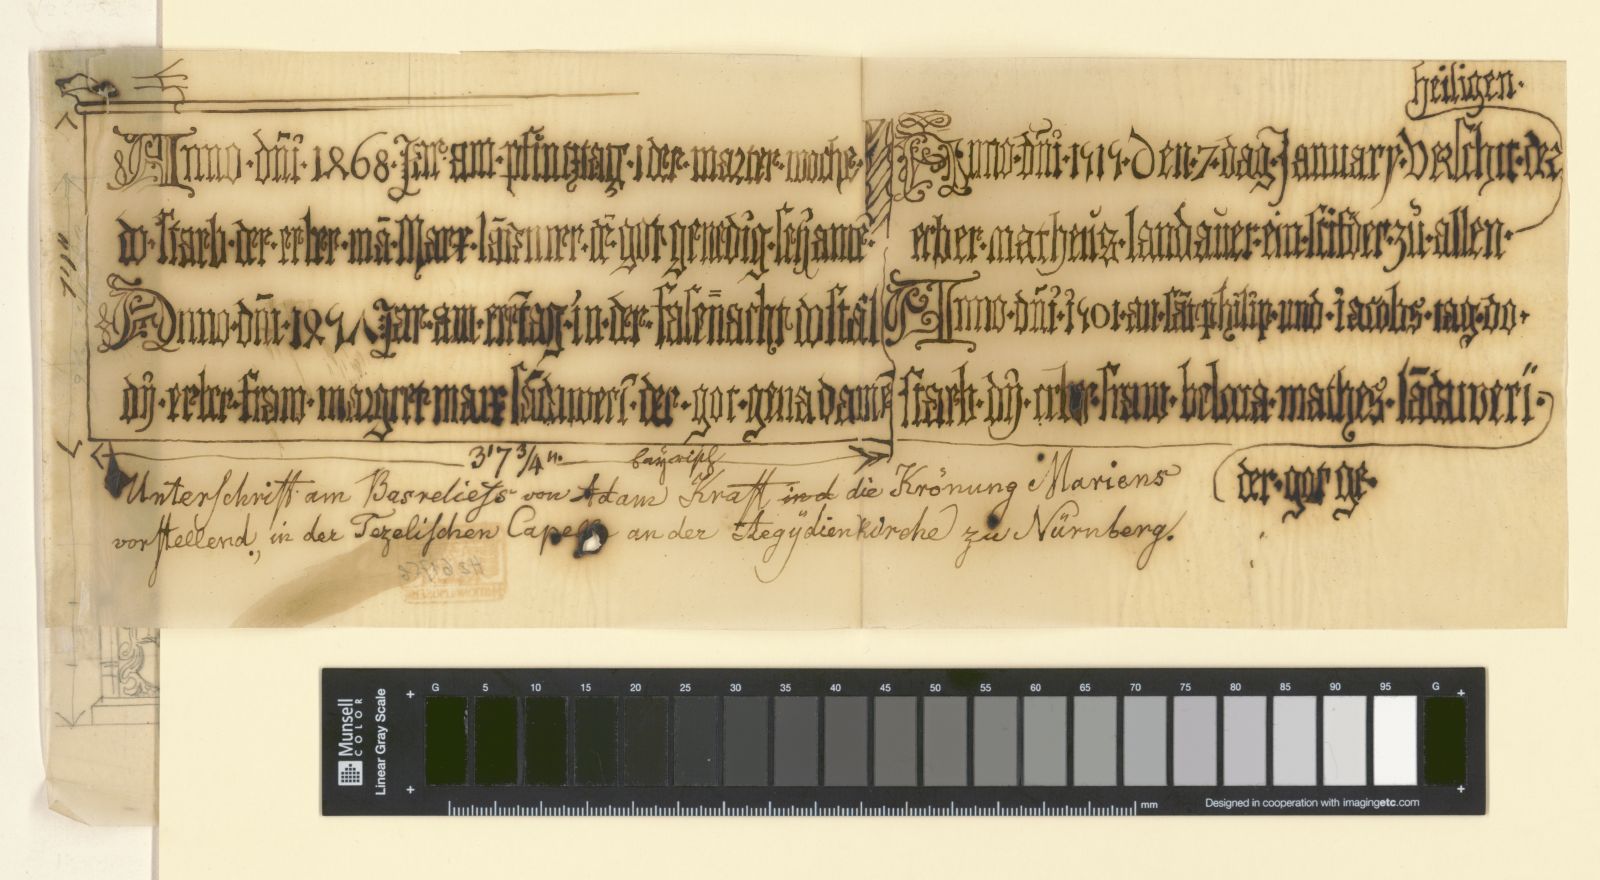 heiligen·
Anno·dn̄i·1468·Jar·am·pfinztag·i der·marter·woche·
do·starb·der·erber·mā·Marx·lādauer·dē·got genedig·sey·ame·
Anno·dn̄i·149Λ Jar·am·ertag·in·der·fasēnacht do
dÿ·erber·fraw·margret marx lādawerī·der·got·genad amē
Anno·dn̄i·1515·Den·7·dag·January·verschit·der
erber·matheus·landauer·ein·stifder·zu·allen·
Anno·dn̄i·1501·an·sāt·philip·und·iacobs·tag·do·
starb·dÿ·erber·fraw·mathes·lādawerī·
der·got ge·
3' 7 3/4 ".
Unterschrift am Basreliefs von Adam Kraft ind die Krönung Mariens
vorstellend, in der Tezelischen Capelle an der Aegÿdienkirche zu Nürnberg.
Munsell
COLOR
Linear Gray Scale
G 5 10 15 20 25 30 35 40 45 50 55 60 65 70 75 80 85 90 95 G
mm
Designed in cooperation with imagingetc.com